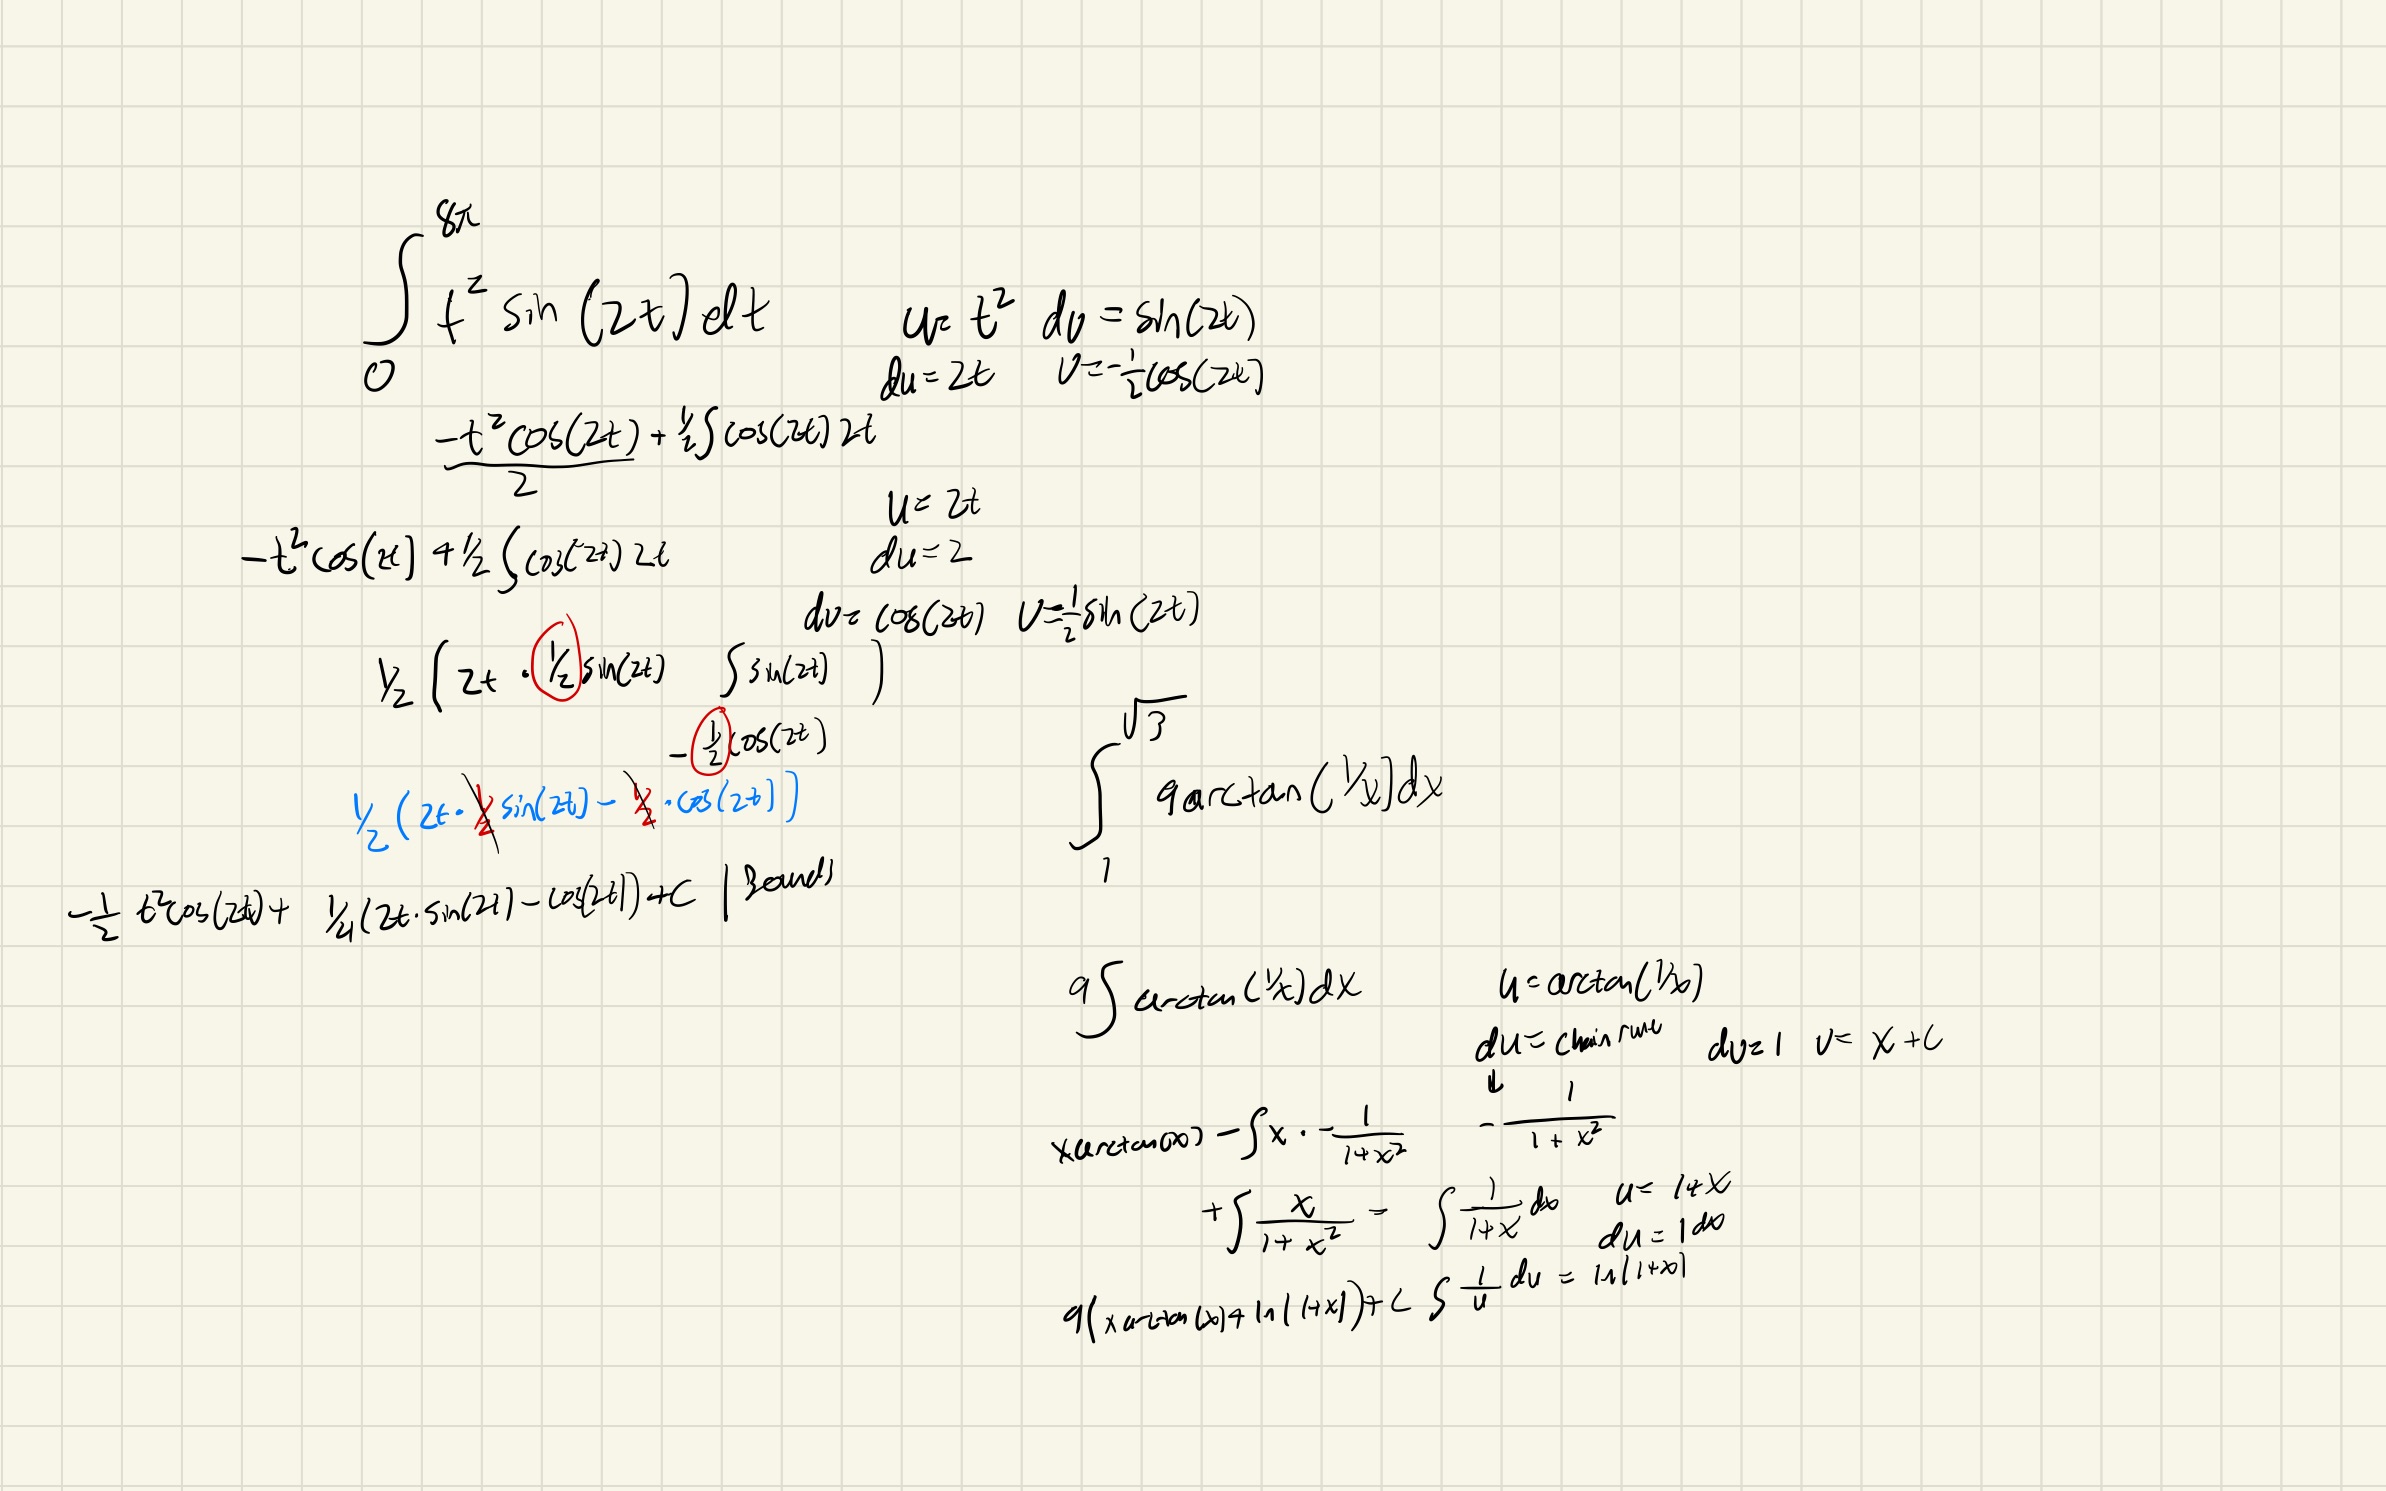 ∫₀^8π t² sin(2t)dt    u= t²  dv = sin(2t)
du = 2t    v=-½cos(2t)
-t²cos(2t)/2 + ½∫cos(2t) 2t
u= 2t
-t²cos(2t) + ½ ∫cos(2t) 2t    du=2
dv= cos(2t)  v=½ sin(2t)
½ [2t · ½ sin(2t)  ∫sin(2t) ]
-½ cos(2t)
½ (2t · ½ sin(2t) - ½ · cos(2t))
-½ t²cos(2t) + ¼(2t·sin(2t) - cos(2t)) + C | Bounds
∫₁^√3 9arctan(1/x)dx
9∫ arctan(1/x)dx    u= arctan(1/x)
du= chain rule  dv=1  v= x+C
↓
xarctan(x) - ∫x · -1/(1+x²)    -1/(1+x²)
+∫ x/(1+x²) = ∫ 1/(1+x) dx    u= 1+x
du = 1dx
9(xarctan(x)+ ln|1+x|)+C  ∫ 1/u du = ln|1+x|